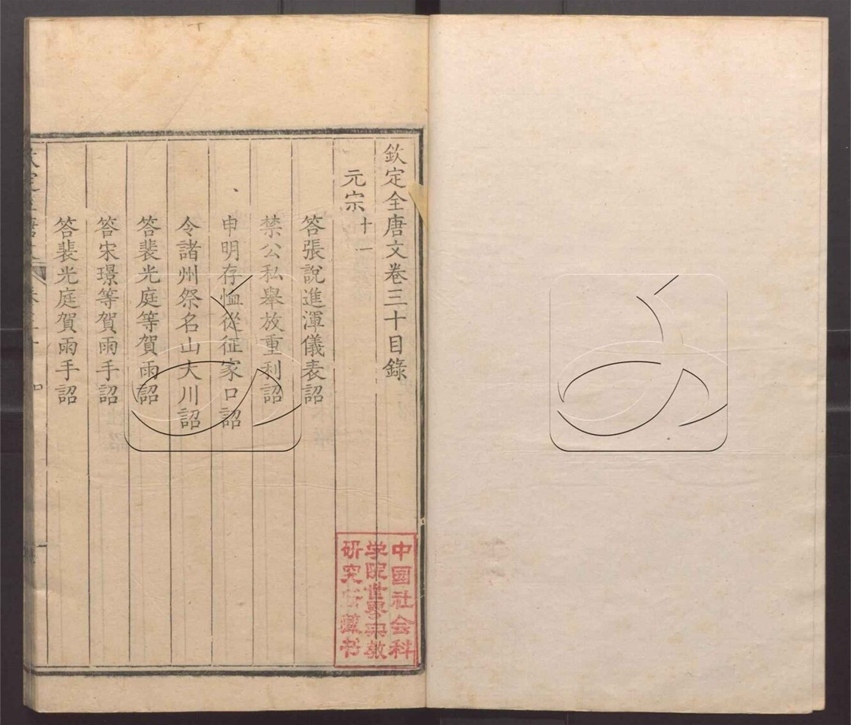 欽定全唐文卷三十目錄
元宗十一
答張說進渾儀表詔
禁公私舉放重利詔
申明存恤從征家口詔
令諸州祭名山大川詔
答裴光庭等賀雨詔
答宋璟等賀雨手詔
答裴光庭賀雨手詔
中国社会科
学院世界宗教
研究所藏书